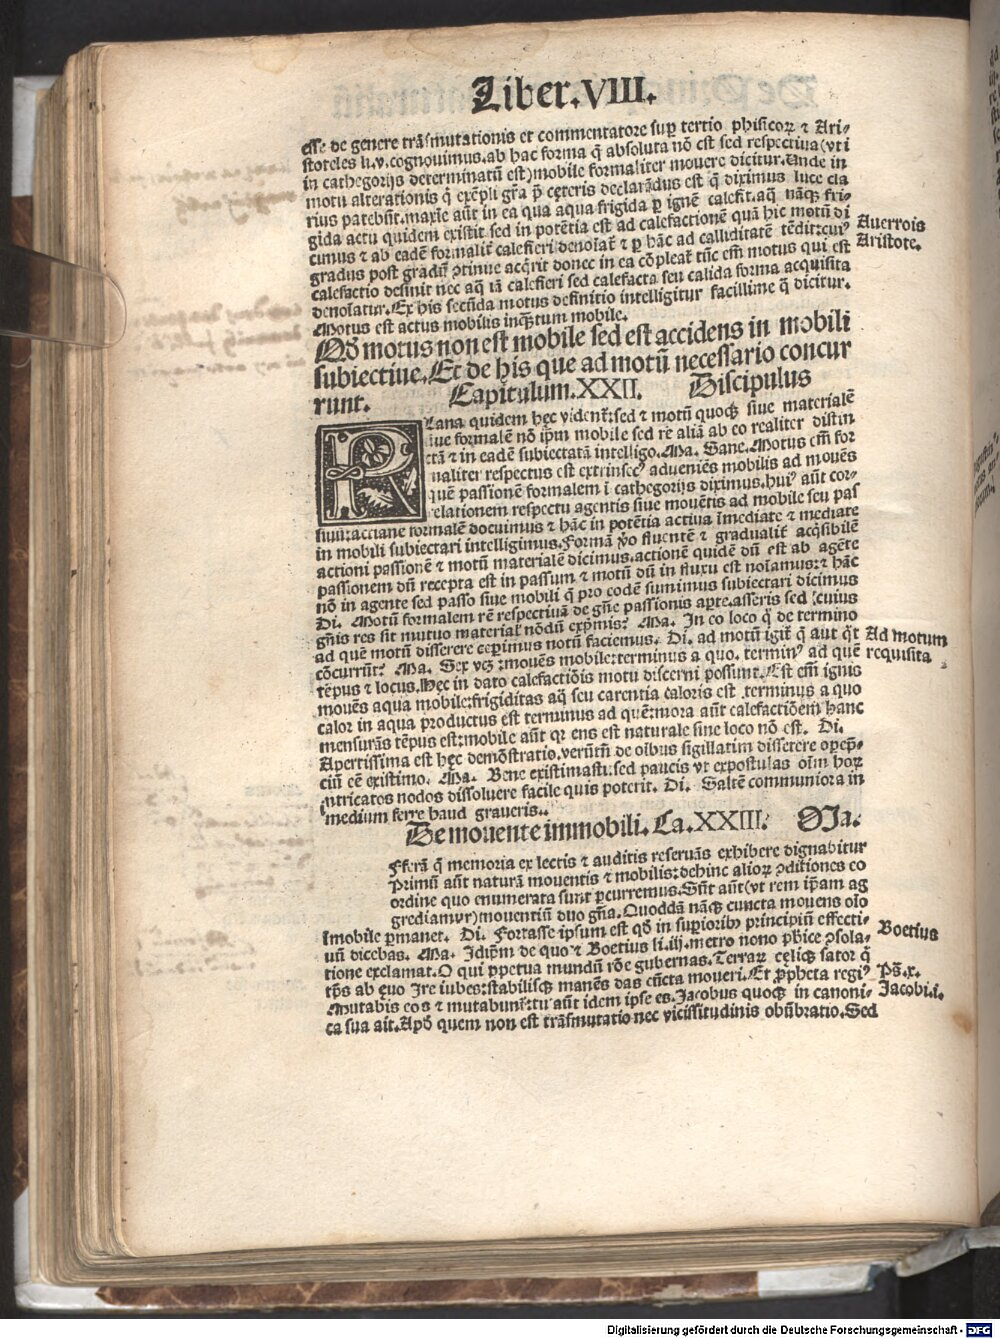 Liber.VIII.
esse de genere trāsmutationis et commentatore sup tertio phisicoꝝ ⁊ Ari-
stoteles li.v.cognouimus.ab hac forma q̄ absoluta nō est sed respectiua (vt i
in cathegorijs determinatū est) mobile formaliter mouere dicitur.Unde in
motu alterationis q̄ exēpli grā p̄ ceteris declarādus est q̄ diximus luce cla
rius patebūt.maxīe aūt in ea qua aqua frigida ꝑ ignē calefit.aq̄ nāqꝫ fri-
gida actu quidem existit sed in potētia est ad calefactionē quā hic motū di
cimus ⁊ ab eadē formalit̄ calefieri denoīat̄ ⁊ ꝑ hāc ad calliditatē tēdit:cuiꝰ
gradus post gradū ꝯtinue acq̄rit donec in ea cōpleat̄ tūc em̄ motus qui est
calefactio desinit nec aq̄ iā calefieri sed calefacta seu calida forma acquisita
denoīatur.Ex his secūda motus definitio intelligitur facillime q̄ dicitur.
Motus est actus mobilis inqꝫtum mobile.
Auerrois
Aristote.
Qd̄ motus non est mobile sed est accidens in mobili
subiectiue.Et de his que ad motū necessario concur
runt. Capitulum.XXII. Discipulus
RLana quidem hęc vident̄:sed ⁊ motū quoqꝫ siue materialē
siue formalē nō ip̄m mobile sed rē aliā ab eo realiter distin
ctā ⁊ in eadē subiectatā intelligo.Ma. Sane.Motus em̄ for
maliter respectus est extrinsecꝰ adueniēs mobilis ad mouēs
quē passionē formalem ī cathegorijs diximus.huiꝰ aūt cor-
relationem respectu agentis siue mouētis ad mobile seu pas
siuū:actionē formalē docuimus ⁊ hāc in potētia actiua īmediate ⁊ mediate
in mobili subiectari intelligimus.Formā ṽo fluentē ⁊ gradualit̄ acq̄sibilē
actioni passionē ⁊ motū materialē dicimus.actionē quidē dū est ab agēte
passionem dū recepta est in passum ⁊ motū dū in fluxu est noīamus:⁊ hāc
nō in agente sed passo siue mobili q̄ pro eodē sumimus subiectari dicimus
Di. Motū formalem rē respectiuā de gn̄e passionis aꝑte.asseris sed (cuius
gn̄is res sit mutuo material̄ nōdū exp̄mis? Ma. In eo loco q̄ de termino
ad quē motū disserere ceperimus notū faciemus. Di. ad motū igit̄ q̄ aut q̄t
cōcurrūt? Ma. Sex vcꝫ:mouēs mobile:terminus a quo. terminꝰ ad quē
tēpus ⁊ locus.Hęc in dato calefactiōis motu discerni possunt.Est em̄ ignis
mouēs aqua mobile:frigiditas aq̄ seu carentia caloris est terminus a quo
calor in aqua productus est terminus ad quē:mora aūt calefactiōem hanc
mensurās tēpus est:mobile aūt qr ens est naturale sine loco nō est. Di.
Apertissima est hęc demōstratio.verūtn̄ de oībus sigillatim disserere oꝑep̄-
ciū eē existimo. Ma. Bene existimasti:sed paucis vt expostulas oīm hoꝝ
intricatos nodos dissoluere facile quis poterit. Di. Saltē communiora in
medium ferre haud graueris.
Ad motum
requisita
De mouente immobili. Ca.XXIII. Ma.
Fferā q̄ memoria ex lectis ⁊ auditis reseruās exhibere dignabitur
Primū aūt naturā mouentis ⁊ mobilis:dehinc alioꝝ ꝯditiones eo
ordine quo enumerata sunt ꝑcurremus.Sūt aūt (vt rem ip̄am ag
grediamur) mouentiū duo gn̄a.Quoddā nāqꝫ cuncta mouens oīo
īmobile ꝑmanet. Di. Fortasse ipsum est qd̄ in suꝑioribꝰ principiū effecti-
uū dicebas. Ma. Idip̄m de quo ⁊ Boetius li.iij.metro nono ph̄ice ꝯsola-
tione exclamat.O qui ꝑpetua mundū rōe gubernas.Terraꝝ cęliqꝫ sator q̄
tp̄s ab ęuo Ire iubes:stabilisqꝫ manēs das cūcta moueri.Et ꝓpheta regiꝰ
Mutabis eos ⁊ mutabunt̄:tu aūt idem ipse es.Jacobus quoqꝫ in canoni-
ca sua ait.Apd̄ quem non est trāsmutatio nec vicissitudinis obūbratio.Sed
Boetius
Ps̄.x.
Jacobi.i.
Digitalisierung gefördert durch die Deutsche Forschungsgemeinschaft - DFG